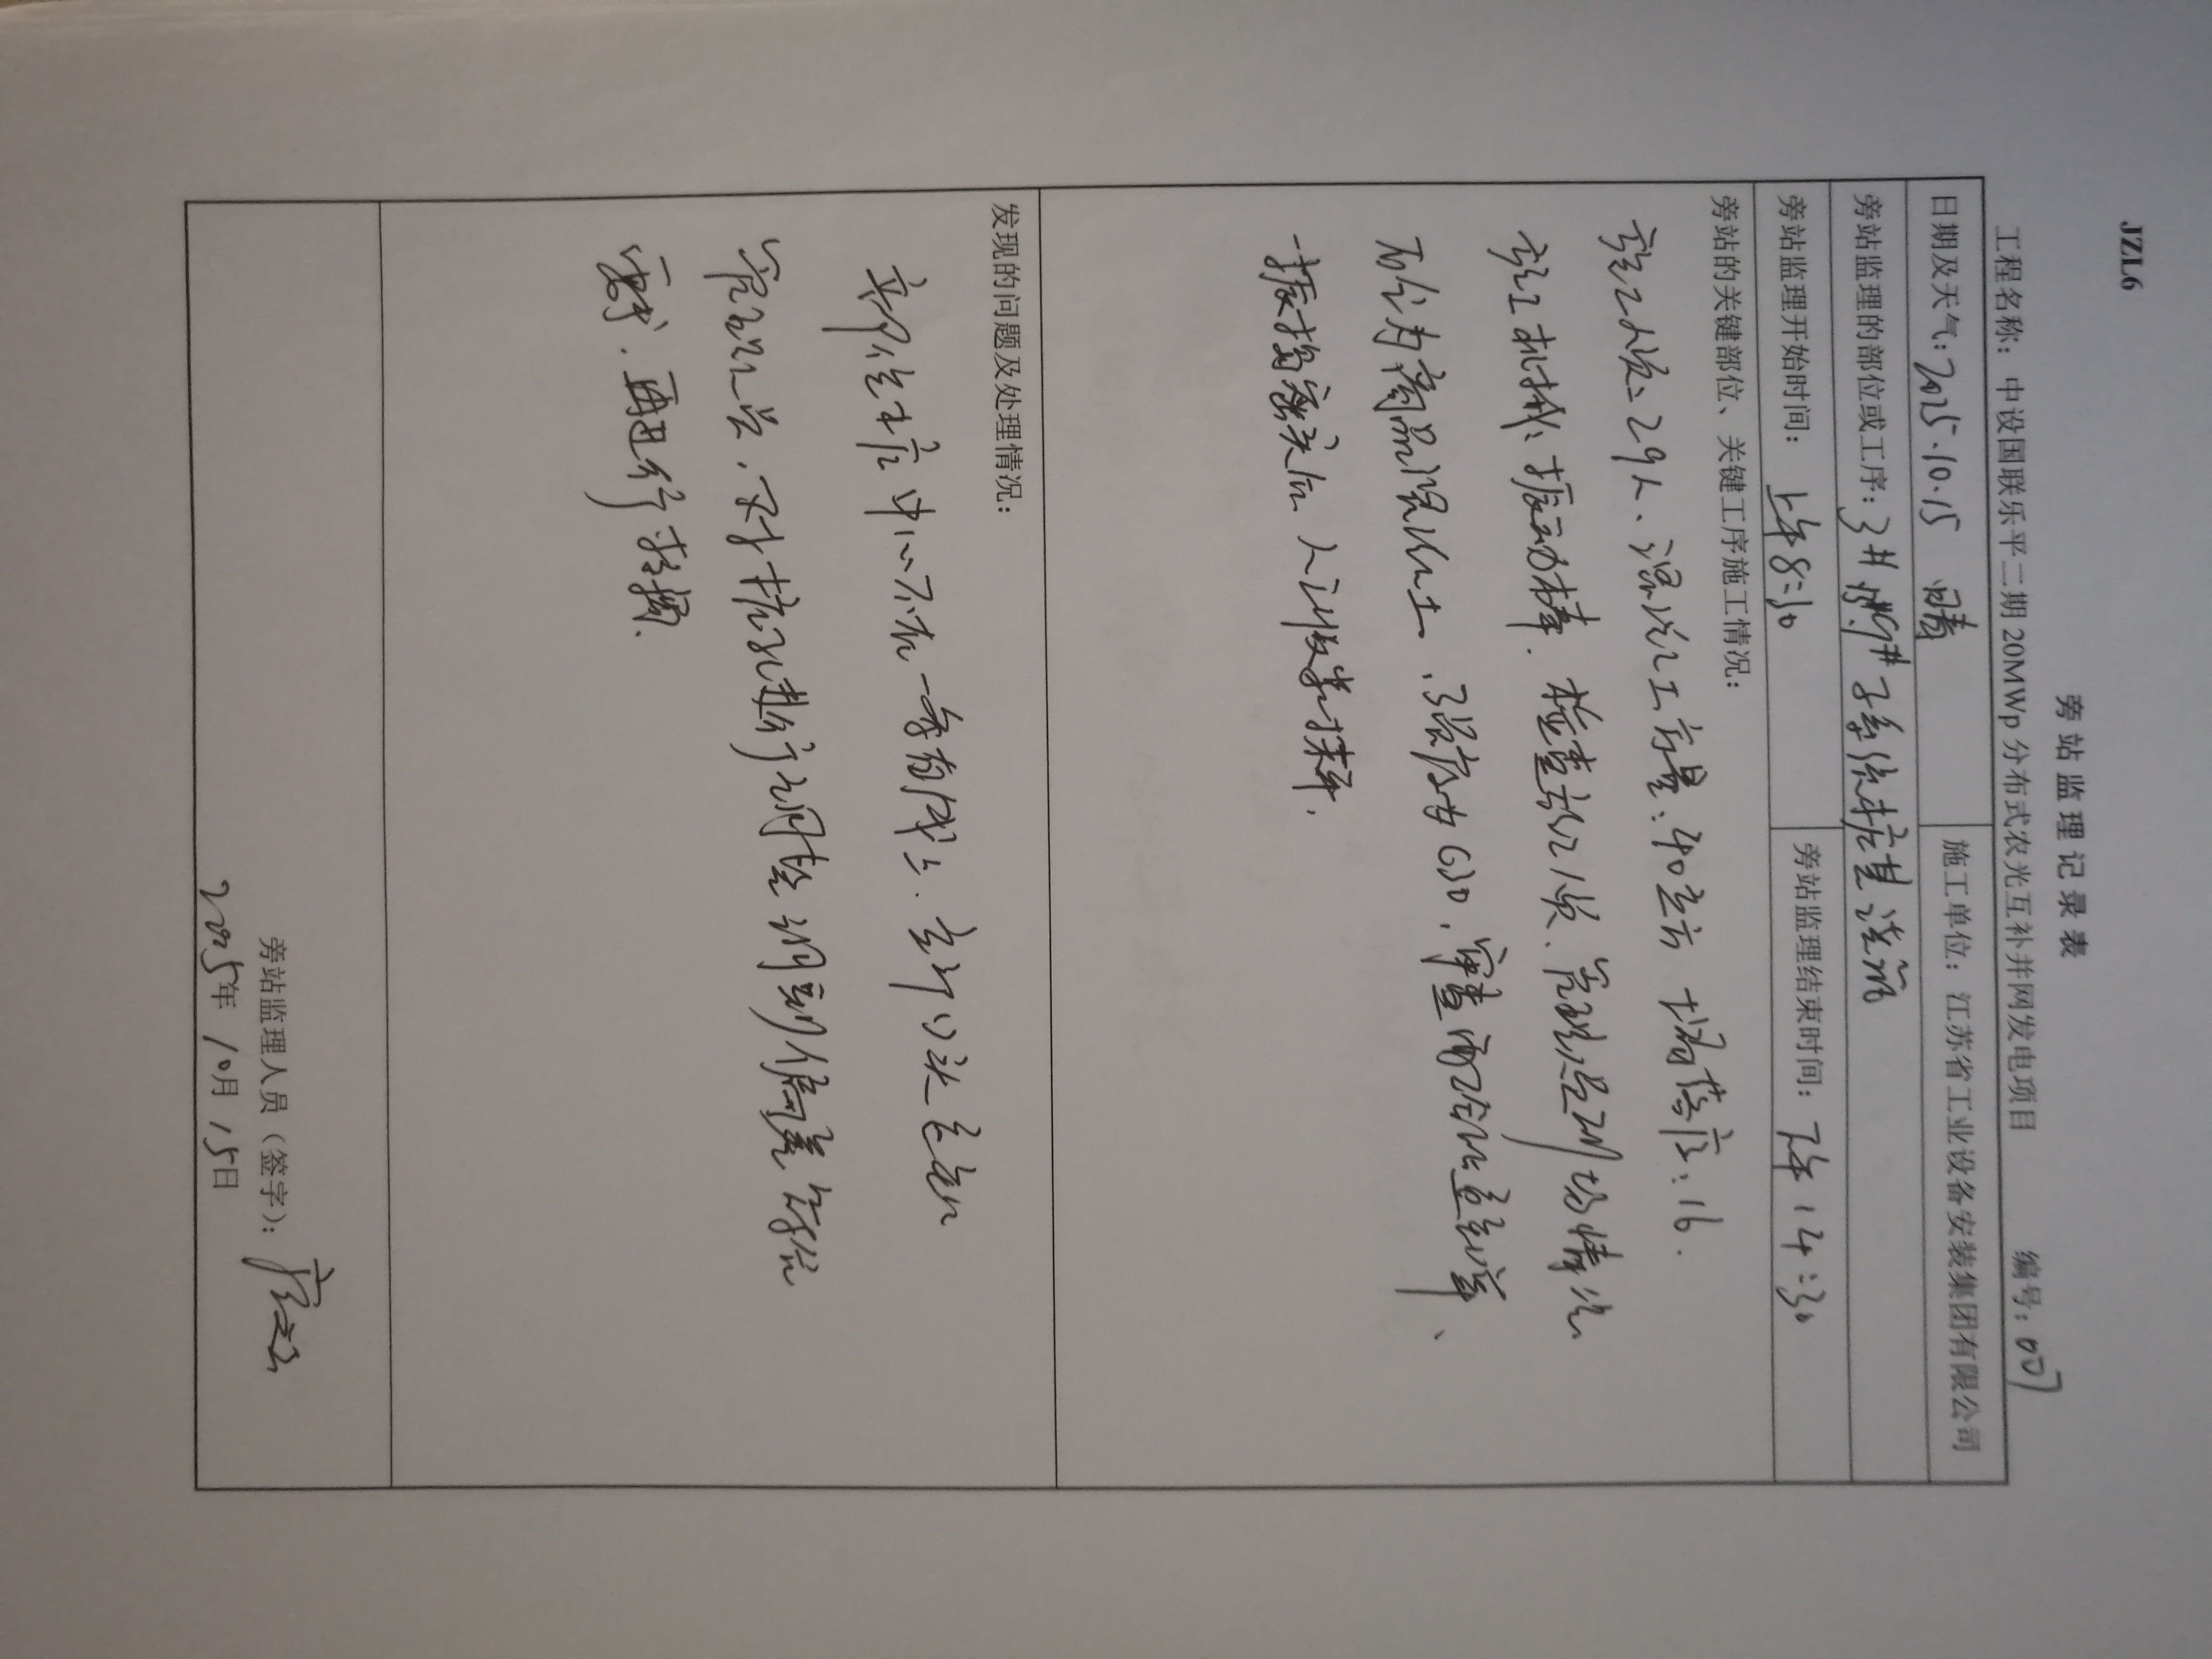 JZL6
旁站监理记录表
工程名称：中设国联乐平二期 20MWp 分布式农光互补并网发电项目 编号：007
日期及天气：2025.10.15 晴 施工单位：江苏省工业设备安装集团有限公司
旁站监理的部位或工序：3# 9# 子系统桩基浇筑
旁站监理开始时间：上午8:30 旁站监理结束时间：下午 14:30
旁站的关键部位、关键工序施工情况：
施工人员：29人、混凝土方量：40立方 塌落度：16.
施工机械：振动棒. 检查施工人员、管理人员到场情况
砼为商品混凝土、强度为C30，审查商砼
振捣密实
发现的问题及处理情况：
部位桩中心不在一条直线上. 立即口头告知
管理人员，对桩孔进行调整 调到偏差符合
要求，再进行
旁站监理人员（签字）：
2025年10月15日